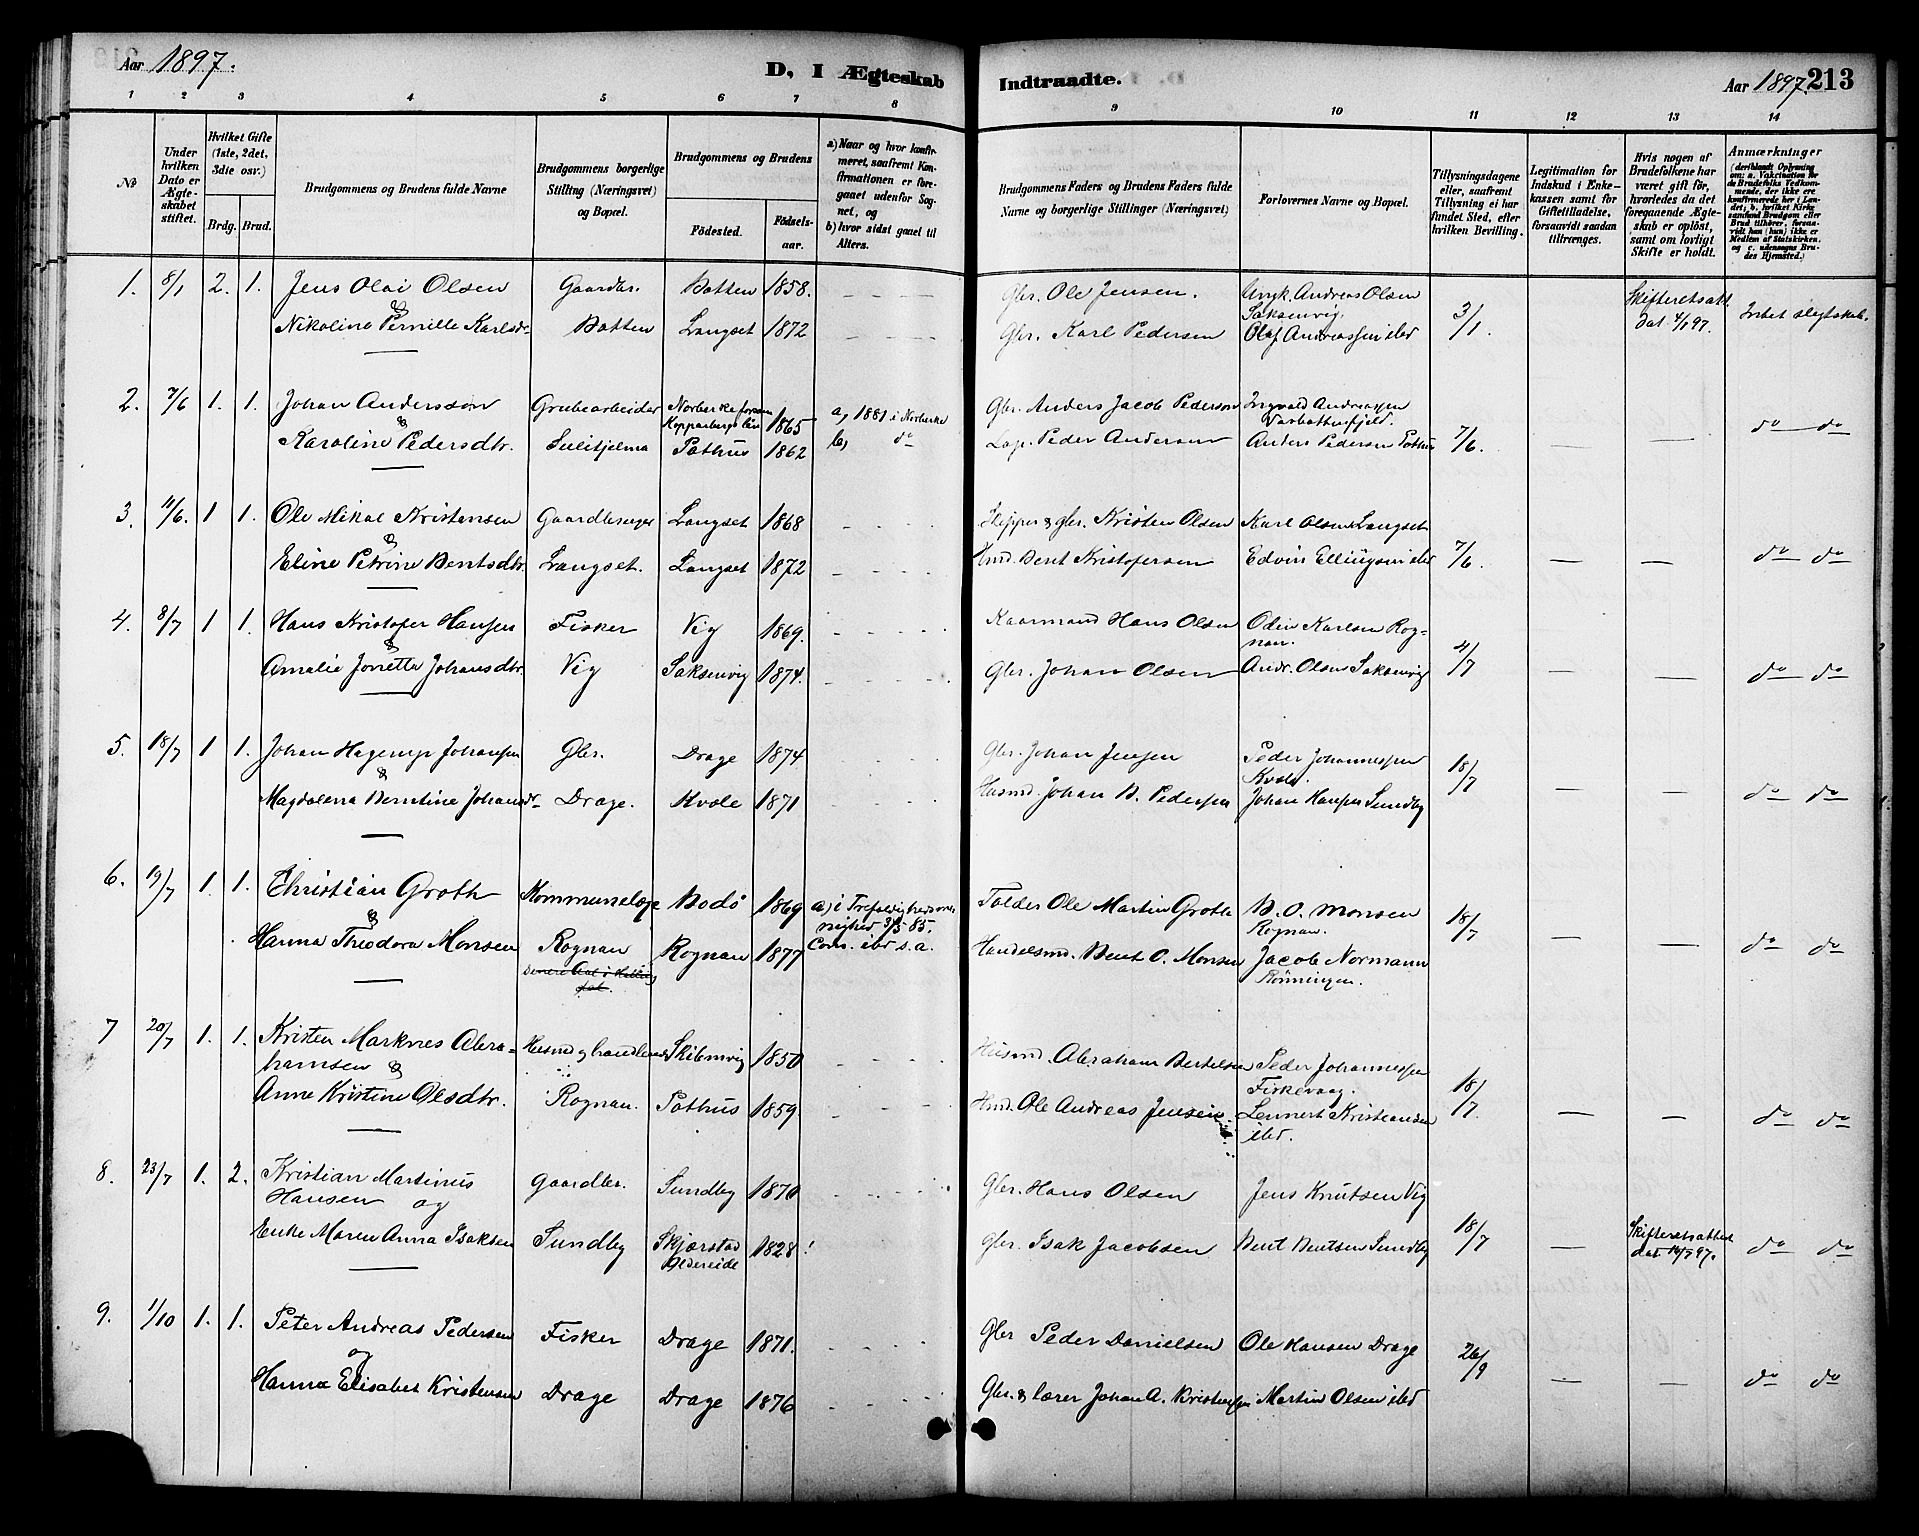 Aar 1897.
D, I Ægteskab
Indtraadte.
Aar 1897. 213
1 2 3 4 5 6 7 8 9 10 11 12 13 14
№
Under hvilken Dato er Ægteskabet stiftet.
Hvilket Gifte (1ste, 2det, 3die osv.)
Brdg. Brud.
Brudgommens og Brudens fulde Navne
Brudgommens borgerlige Stilling (Næringsvei) og Bopæl.
Brudgommens og Brudens
Fødested.
Fødselsaar.
a) Naar og hvor konfirmeret, saafremt Konfirmationen er foregaaet udenfor Sognet, og
b) hvor sidst gaaet til Alters.
Brudgommens Faders og Brudens Faders fulde Navne og borgerlige Stillinger (Næringsvei)
Forlovernes Navne og Bopæl.
Tillysningsdagene eller, saafremt Tillysning ei har fundet Sted, efter hvilken Bevilling.
Legitimation for Indskud i Enkekassen samt for Giftetilladelse, forsaavidt saadan tiltrænges.
Hvis nogen af Brudefolkene har været gift før, hvorledes da det foregaaende Ægteskab er opløst, samt om lovligt Skifte er holdt.
Anmærkninger (deriblandt Oplysning om: a. Vaccination for de Brudefolks Vedkommende, der ikke ere konfirmerede her i Landet; b. hvilket Kirkesamfund Brudgom eller Brud tilhører, forsaavidt han (hun) ikke er Medlem af Statskirken, og c. udensogns Brudes Hjemsted.)
1. 8/1 2. 1. Jens Olai Olsen Gaardbr. Botten 1858. Gbr. Ole Jensen. Ungk. Andreas Olsen Saksenvig. 3/1. Skifteretsatt. dat. 4/1 97. Intet slegtskab.
&
Nikolina Pernille Karlsdr. Botten Langset 1872 Gbr. Karl Pedersen Olaf Andreassen ibd
2. 7/6 1. 1. Johan Andersson Grubearbeider Norberke forsam. Kopparbergs län 1865 a) 1881 i Norberke Gbr. Anders Jacob Pederson Ingvald Andreassen
&
Karoline Pedersdtr. Sulitjelma Pothus 1862 b) do Lap. Peder Andersen Anders Pedersen Pothus 7/6. — — do do
3. 11/6. 1 1. Ole Mikal Kristensen Gaardbruger Langset 1868 Skipper & gbr. Kristen Olsen Karl Olsen Langset
&
Eline Petrine Bentsdtr. Langset. Langset 1872 Hmd. Bent Kristofersen Edvin Ellingsen ibd 7/6 — — do do
4. 8/7 1 1. Hans Kristofer Hansen Fisker Vig 1869. Kaarmand Hans Olsen Odin Karlsen Rognan.
&
Amalie Jonetta Johansdtr. Vig Saksenvig 1874. Gbr. Johan Olsen Andr. Olsen Saksenvig 4/7 — — do do
5. 18/7 1 1. Johan Hagerup Johansen Gbr. Drage 1874 Gbr. Johan Jensen Peder Johannessen Kvale.
&
Magdalena Berntine Johansdr Drage. Kvale 1871 Husmd. Johan B. Pedersen Johan Hansen Sundby 18/7 — — do do
6. 19/7 1. 1. Christian Groth Kommunelæge Bodø 1869 a) i Trefoldighedsmenighed 3/5 85. Tolder Ole Martin Groth B. O. Monsen Rognan.
&
Hanna Theodora Monsen Rognan Rognan 1877 Com. ibd s. a. Handelsmd. Bent O. Monsen Jacob Normann Rønningen. 18/7 — — do do
7 20/7 1. 1. Kristen Marknes Abrahamsen & Husmd og handlende Skibenvig 1850 Husmd. Abraham Bertelsen Peder Johannessen Fiskevaag.
Anne Kristine Olsdtr. Rognan. Pothus 1859. Hmd. Ole Andreas Jensen Lennert Kristiansen ibd. 18/7. — — do do
8. 23/7 1. 2. Kristian Martinus Hansen og Gaardbr. Sundby 1870 Gbr. Hans Olsen Jens Knutsen Vig
Enke Maren Anna Isaksen Sundby Skjerstad Aldereide 1828! Gbr. Isak Jacobsen Bent Bentsen Sundby 18/7 — Skifteretsattest dat. 14/7 97. do do
9. 1/10 1. 1. Peter Andreas Pedersen Fisker Drage 1871. Gbr Peder Danielsen Ole Hansen Drage
og
Hanna Elisabet Kristensen Drage Drage 1876 Gbr. & lærer Johan A. Kristensen Martin Olsen ibd 26/9 — — do do